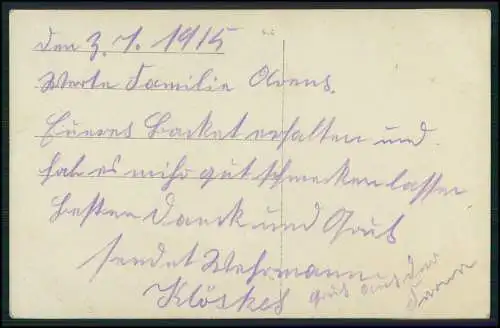 den 3. 1. 1915
Werte Familie Ovens.
Eueres Backet erhalten und
hab es mihr gut schmecken lassen
besten Danck und Gruß
sendet Wehrmann
Klöskes
Gruß aus der